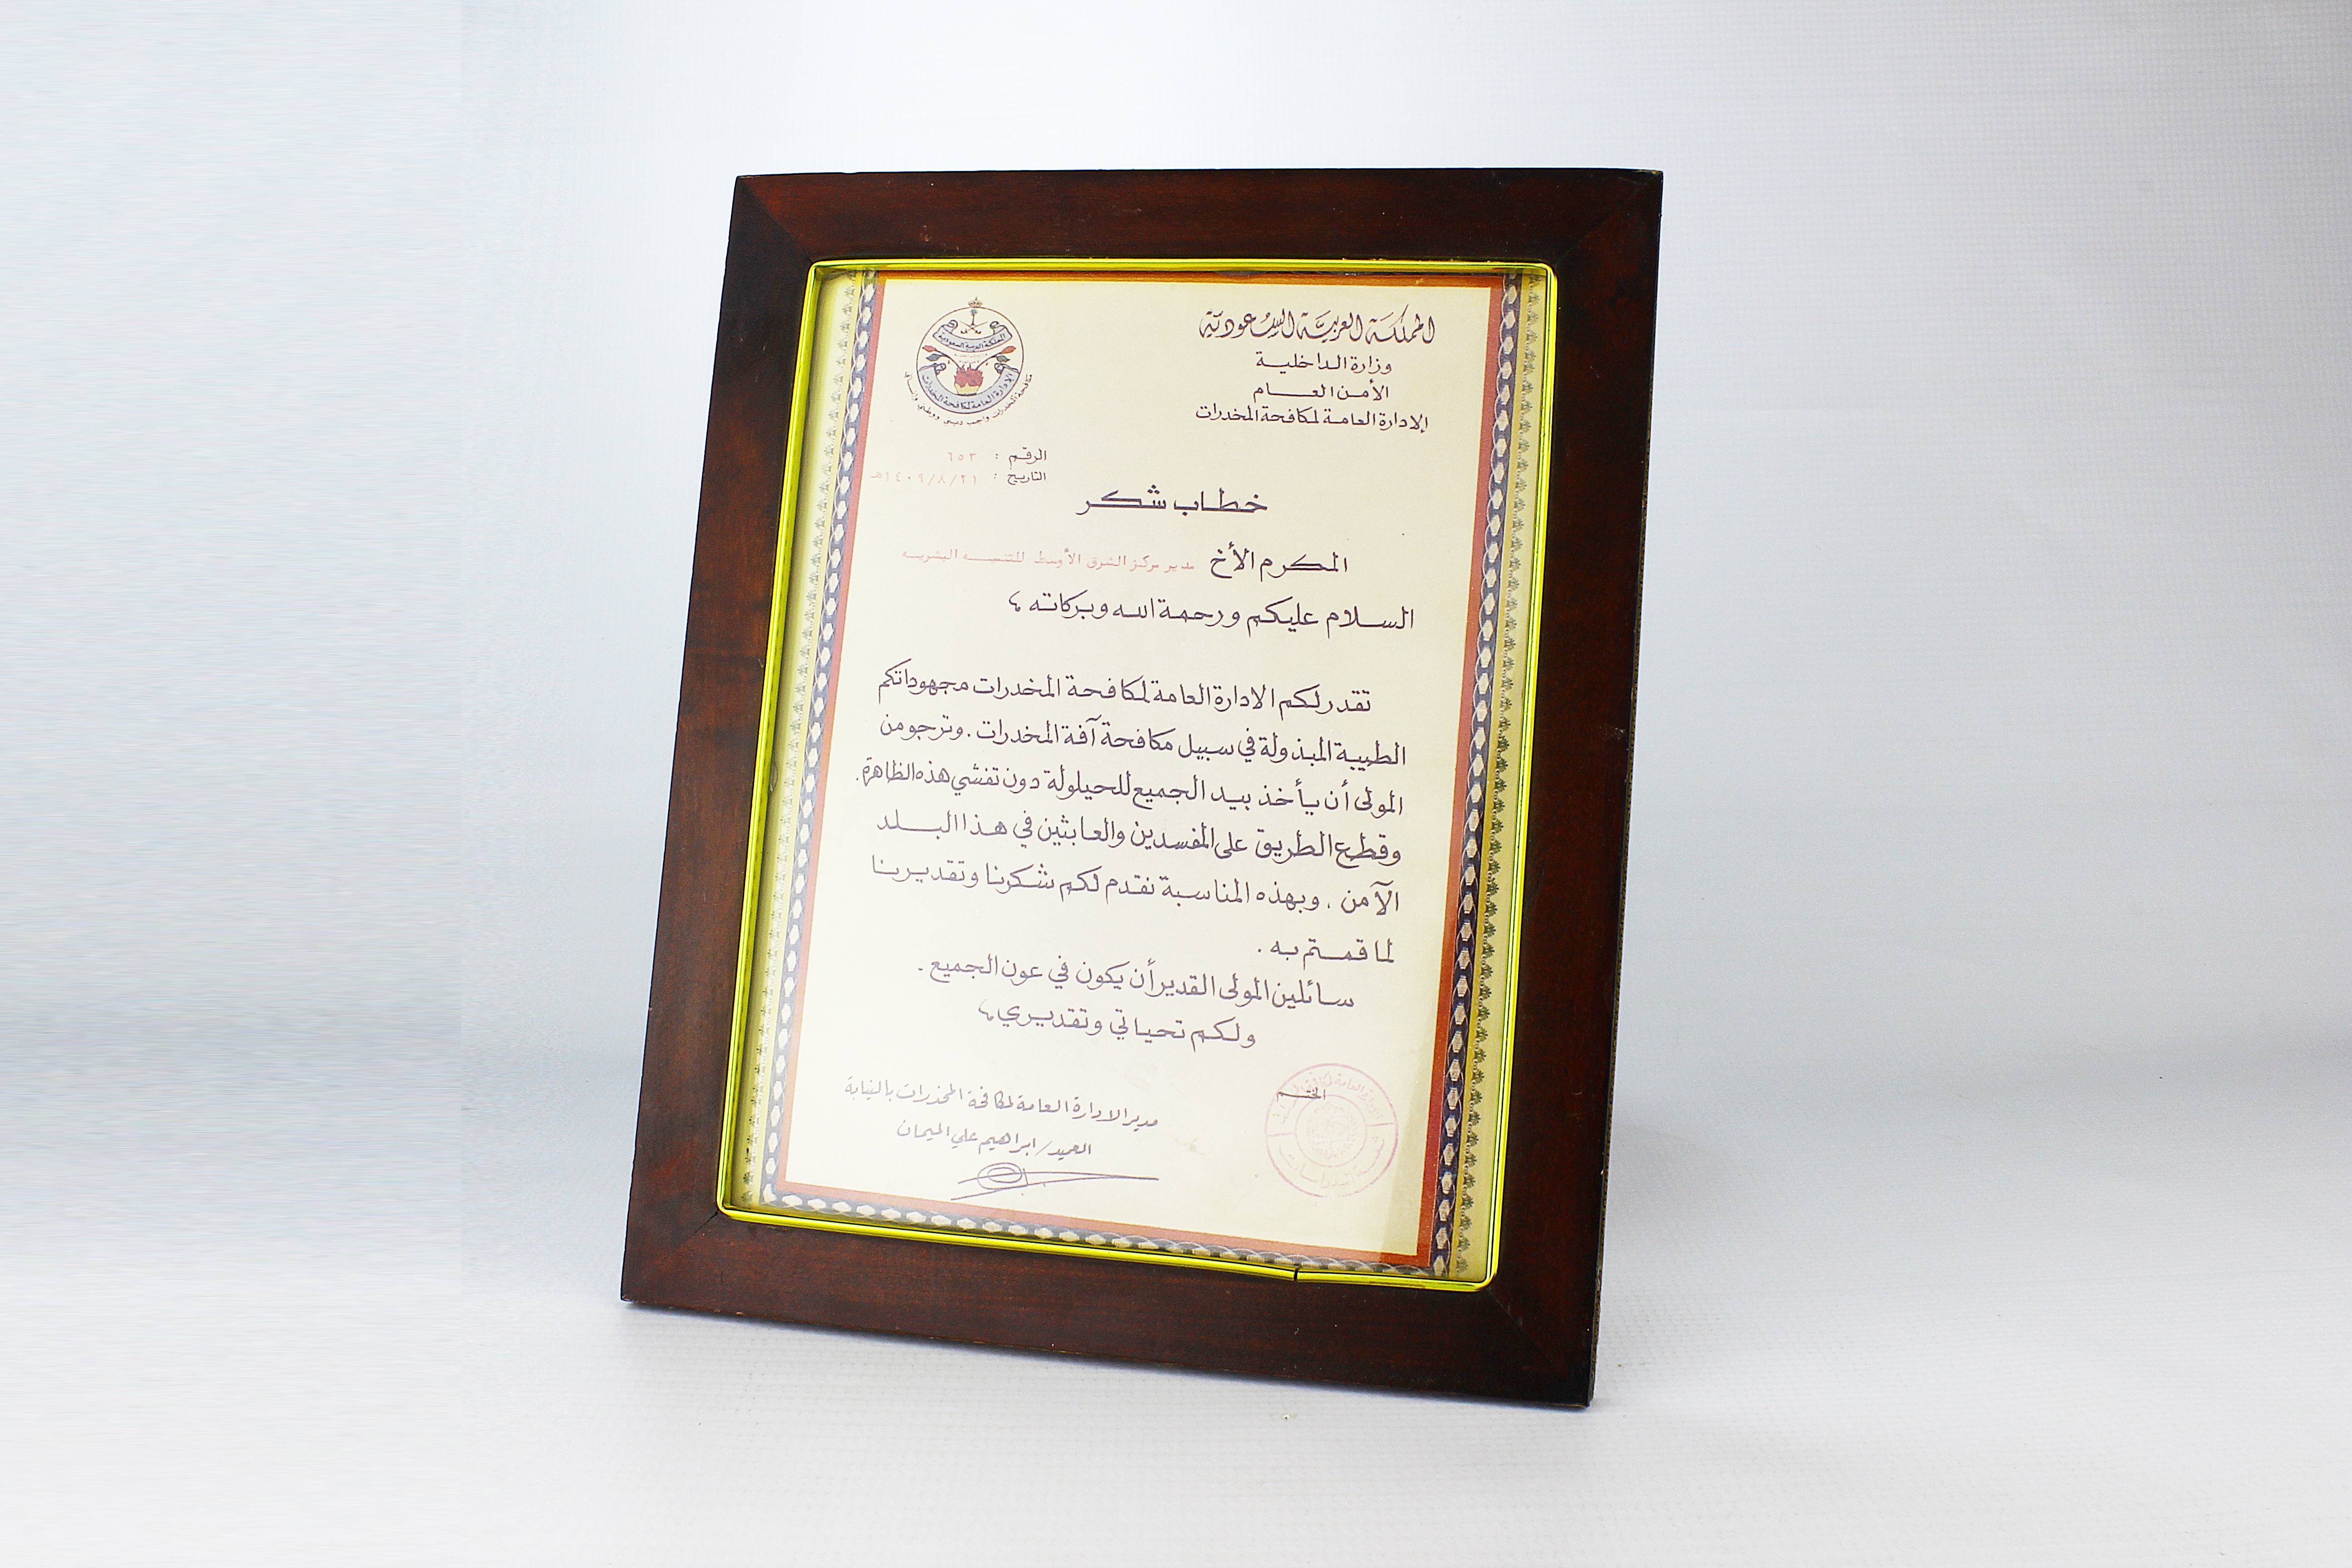 المملكة العربية السعودية
وزارة الداخلية
الأمن العام
الإدارة العامة لمكافحة المخدرات
المملكة العربية السعودية
الإدارة العامة لمكافحة المخدرات
مكافحة المخدرات واجب ديني ووطني وإنساني
الرقم : ٦٥٣
التاريخ : ١٤٠٩/٨/٢١هـ
خطاب شكر
المكرم الأخ مدير مركز الشرق الأوسط للتنميه البشريه
السلام عليكم ورحمة الله وبركاته ،
تقدر لكم الادارة العامة لمكافحة المخدرات مجهوداتكم
الطيبة المبذولة في سبيل مكافحة آفة المخدرات . ونرجو من
المولى أن يأخذ بيد الجميع للحيلولة دون تفشي هذه الظاهرة .
وقطع الطريق على المفسدين والعابثين في هذا البلد
الآمن . وبهذه المناسبة نقدم لكم شكرنا وتقديرنا
لما قمتم به .
سائلين المولى القدير أن يكون في عون الجميع .
ولكم تحياتي وتقديري ،
الختم
مدير الادارة العامة لمكافحة المخدرات بالنيابة
العميد / ابراهيم علي الميمان